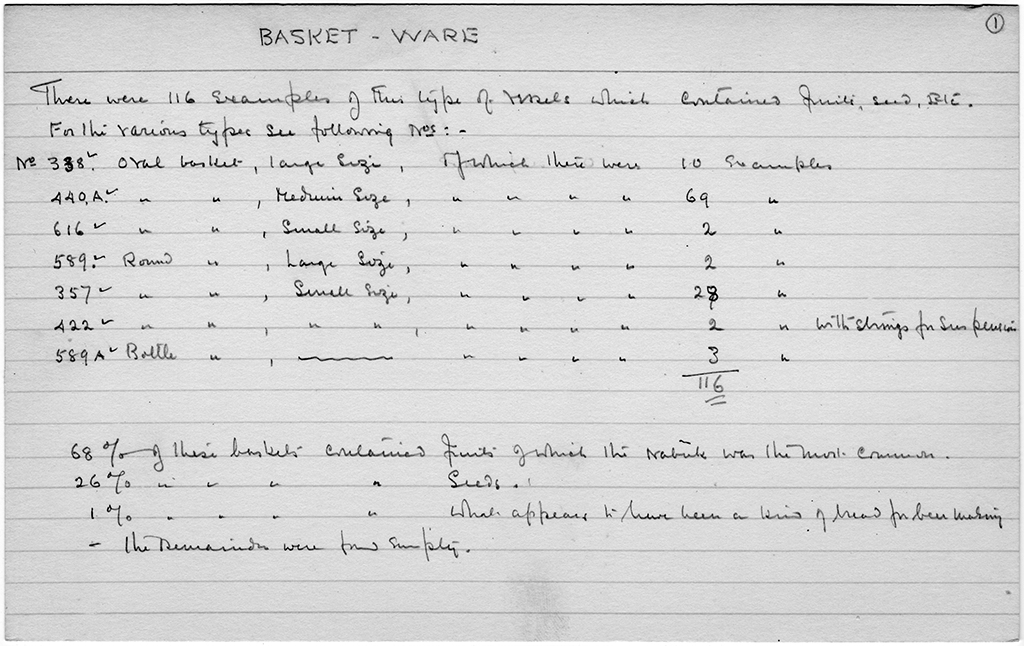 ①
BASKET - WARE
There were 116 examples of this type of vessels which contained fruits, seed, Etc.
For the various types see following Nos: -
No 338✓. Oval basket, large size, of which there were 10 Examples
440,A.✓ " " , Medium Size, " " " " 69 "
616✓ " " , Small Size, " " " " 2 "
589.✓ Round " , Large Size, " " " " 2 "
357✓ " " , Small Size, " " " " 28 "
422✓ " " , " " , " " " " 2 " with strings for suspension
589A✓ Bottle " , " " " " 3 "
116
68 % of these baskets contained fruits of which the nabuk was the most common.
26 % " " " " Seeds.
1 % " " " " What appears to have been a kind of bread for beer making
- The remainder were found Empty.